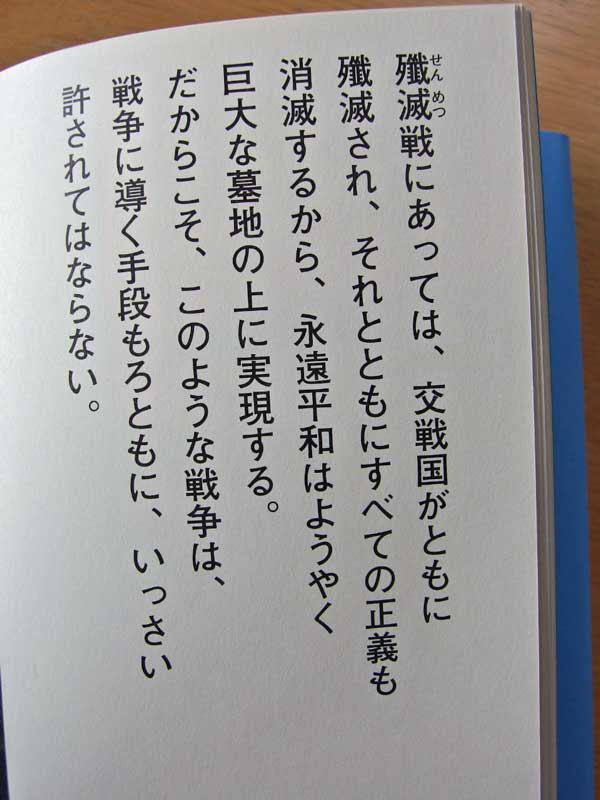 殲滅戦にあっては、交戦国がともに
せん めつ
殲滅され、それとともにすべての正義も
消滅するから、永遠平和はようやく
巨大な墓地の上に実現する。
だからこそ、このような戦争は、
戦争に導く手段もろともに、いっさい
許されてはならない。